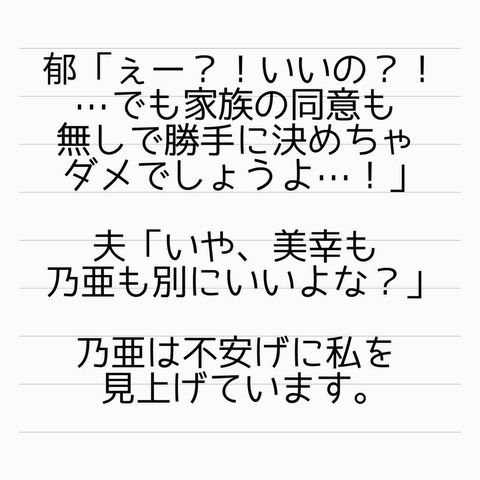 郁「ぇー？！いいの？！
…でも家族の同意も
無しで勝手に決めちゃ
ダメでしょうよ…！」
夫「いや、美幸も
乃亜も別にいいよな？」
乃亜は不安げに私を
見上げています。